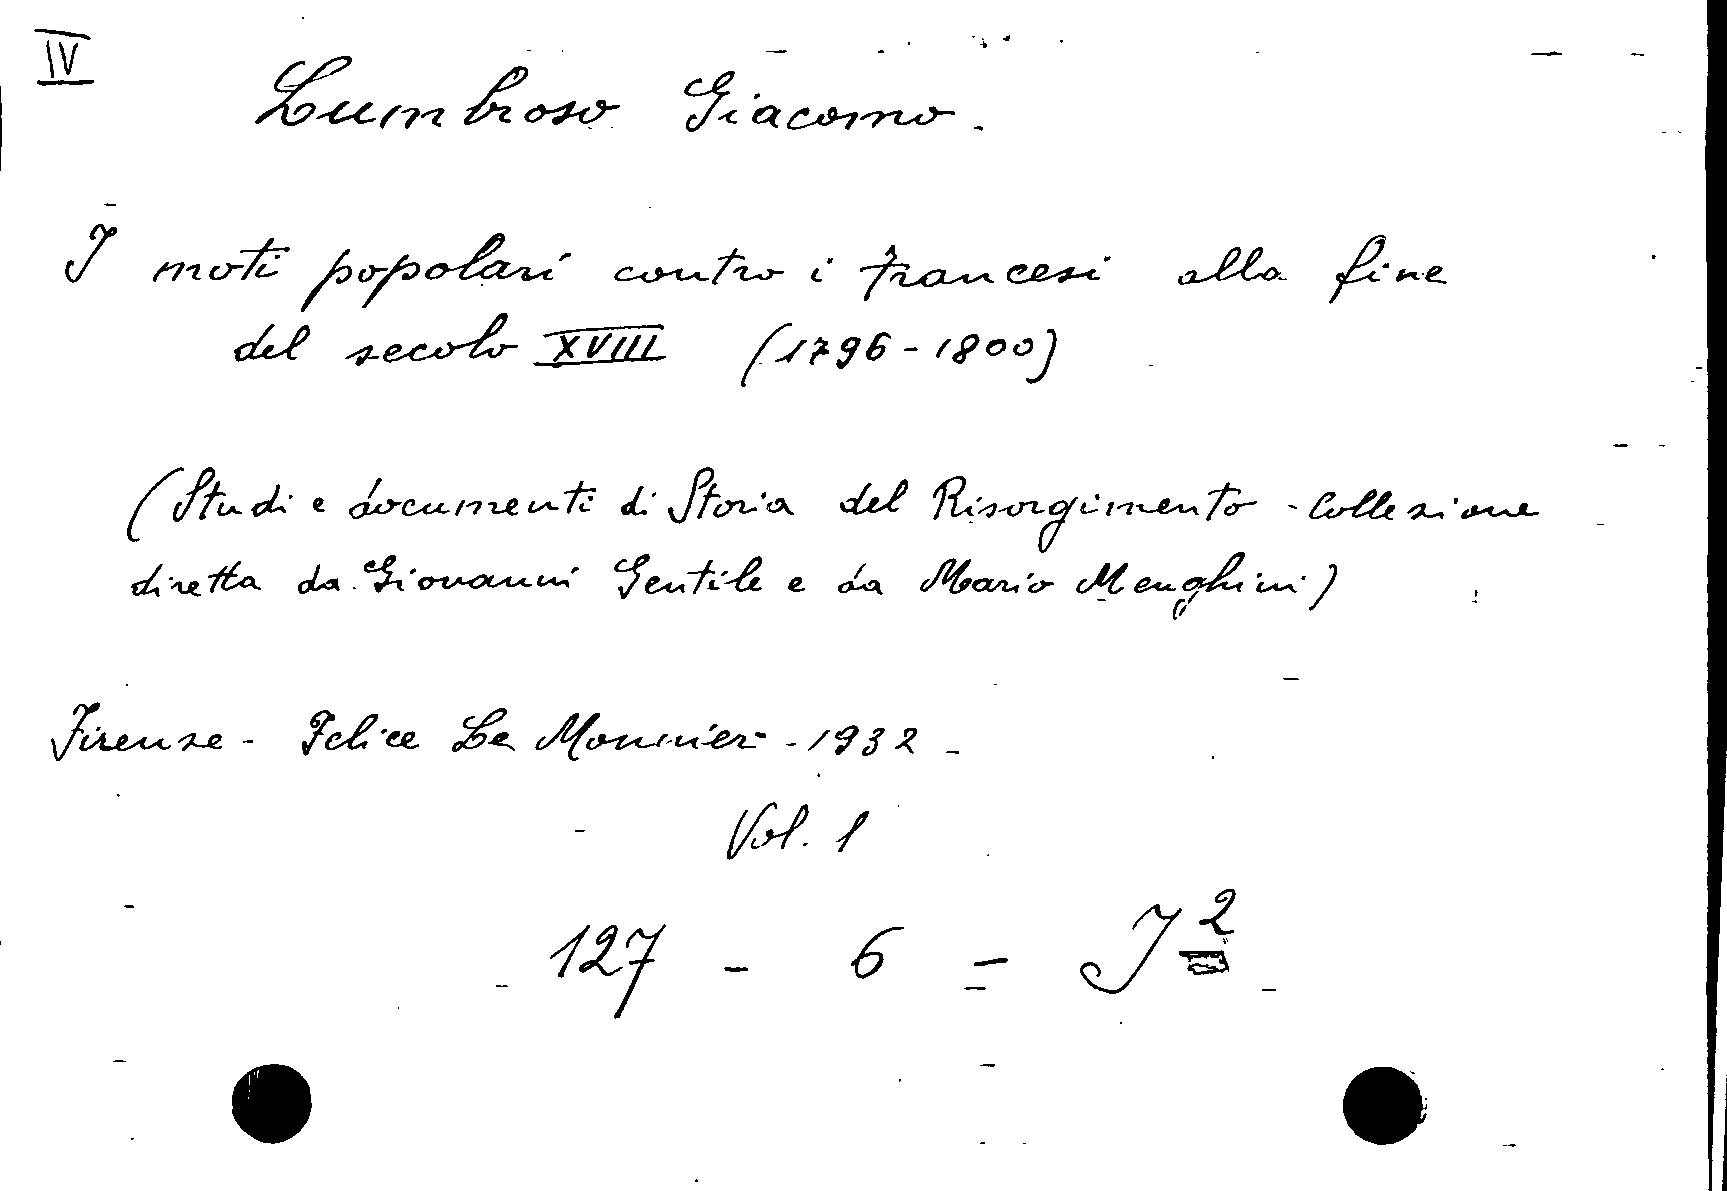 IV
Lumbroso Giacomo.
I moti popolari contro i francesi alla fine
del secolo XVIII (1796-1800)
(Studi e documenti di Storia del Risorgimento - Collezione
diretta da Giovanni Gentile e da Mario Menghini)
Firenze - Felice Le Monnier - 1932 -
Vol. 1
127 - 6 = I 2